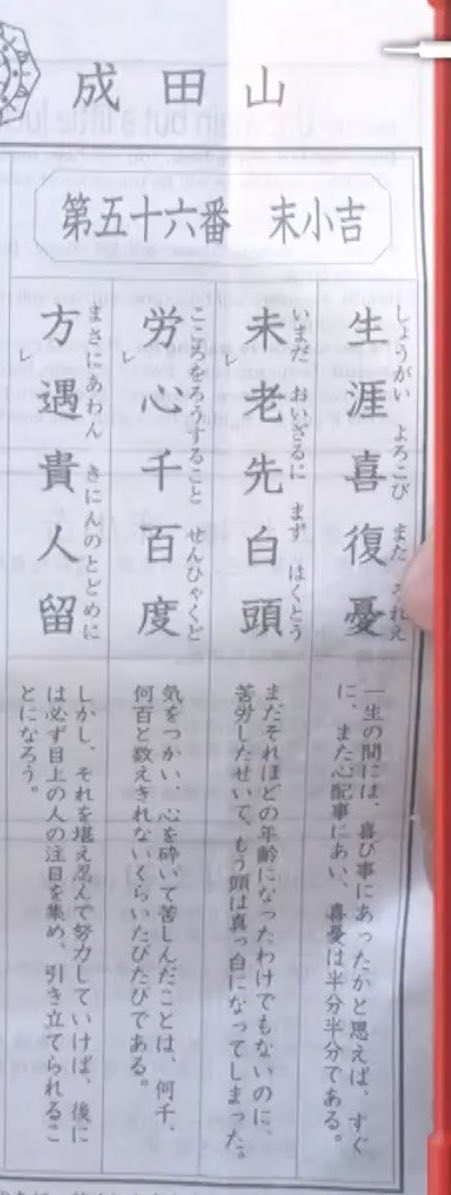 成田山
第五十六番　末小吉
生涯喜復憂
しょうがい　よろこび　また　うれえ
一生の間には、喜び事にあったかと思えば、すぐ
に、また心配事にあい、喜憂は半分半分である。
未老先白頭
いまだ　おいざるに　まず　はくとう
まだそれほどの年齢になったわけでもないのに、
苦労したせいで、もう頭は真っ白になってしまった。
労心千百度
こころをろうすること　せんひゃくど
気をつかい、心を砕いて苦しんだことは、何千、
何百と数えきれないくらいたびたびである。
方遇貴人留
まさにあわん　きにんのとどめに
しかし、それを堪え忍んで努力していけば、後に
は必ず目上の人の注目を集め、引き立てられるこ
とになろう。